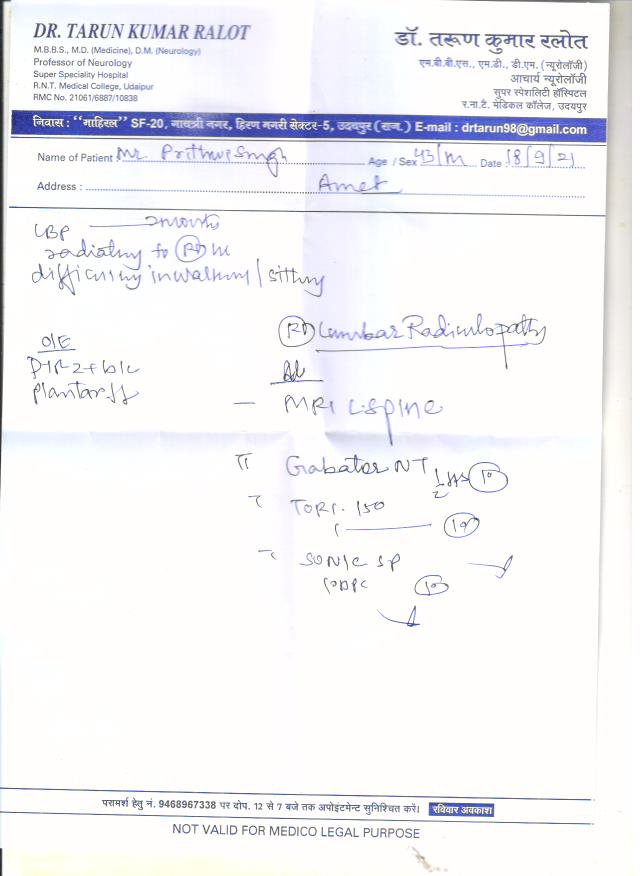 DR. TARUN KUMAR RALOT
M.B.B.S., M.D. (Medicine), D.M. (Neurology)
Professor of Neurology
Super Speciality Hospital
R.N.T. Medical College, Udaipur
RMC No. 21061/6887/10838
डॉ. तरूण कुमार रलोत
एम.बी.बी.एस., एम.डी., डी.एम. (न्यूरोलॉजी)
आचार्य न्यूरोलॉजी
सुपर स्पेशलिटी हॉस्पिटल
र.ना.टै. मेडिकल कॉलेज, उदयपुर
निवास : "माहिरल" SF-20, गायत्री नगर, हिरण मगरी सेक्टर-5, उदयपुर (राज.) E-mail : drtarun98@gmail.com
Name of Patient Mr. Prithvi Singh Age / Sex 43/M Date 18/9/21
Address : Amet
LBP 2 months
radiating to (Rt)
difficulty in walking / sitting
O/E
DTR 2+ b/L
Plantar ↓↓
(Rt) Lumbar Radiculopathy
MRI L-SPINE
Gabator NT
TORT. 150
SONIC SP
परामर्श हेतु नं. 9468967338 पर दोप. 12 से 7 बजे तक अपोइंटमेन्ट सुनिश्चित करें। रविवार अवकाश
NOT VALID FOR MEDICO LEGAL PURPOSE